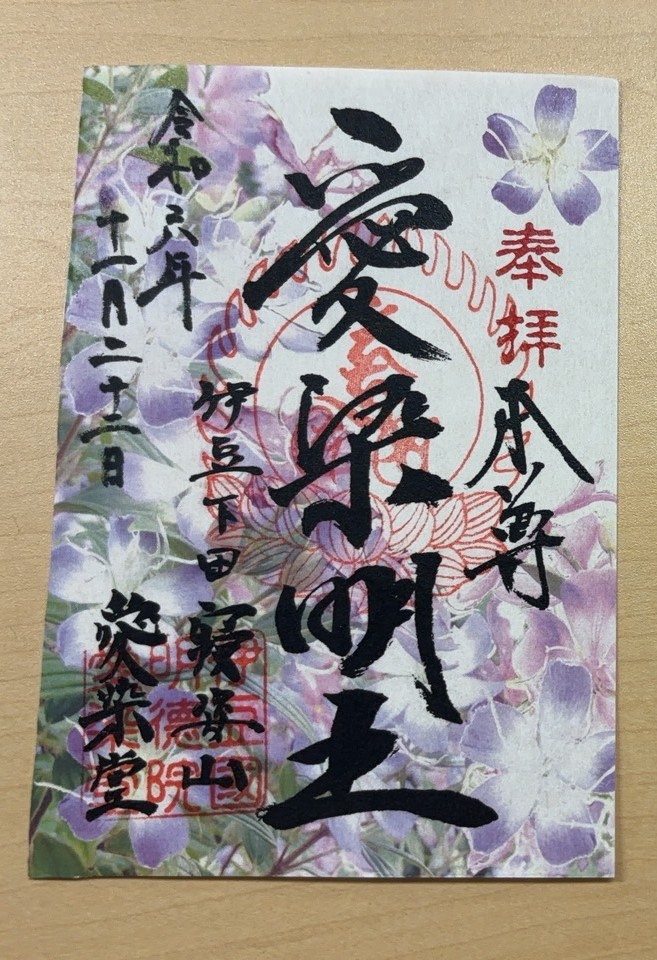 奉拝
本尊
愛染明王
伊豆下田寝姿山
愛染堂
令和六年
十一月二十二日
伊豆國
明徳院
愛染堂